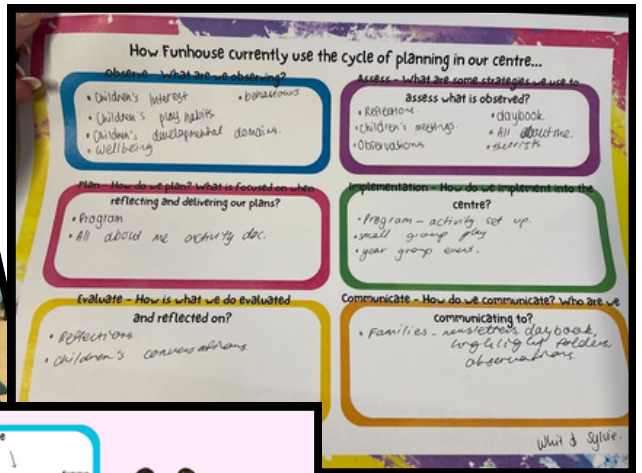 How Funhouse currently use the cycle of planning in our centre...
Observe - What are we observing?
• Children's Interest • behaviours
• Children's play habits
• Children's developmental domains.
• Wellbeing
Assess - What are some strategies we use to
assess what is observed?
• Reflections • daybook
• children's meetings. • All about me.
• Observations • theorists
Plan - How do we plan? What is focused on when
reflecting and delivering our plans?
• Program
• All about me activity doc.
Implementation - How do we implement into the
centre?
• Program - activity set up.
• small group play
• year group event.
Evaluate - How is what we do evaluated
and reflected on?
• Reflections
• Children's conversations
Communicate - How do we communicate? Who are we
communicating to?
• Families - newsletters, daybook,
highlight folders,
observations.
Whit & Sylvie.